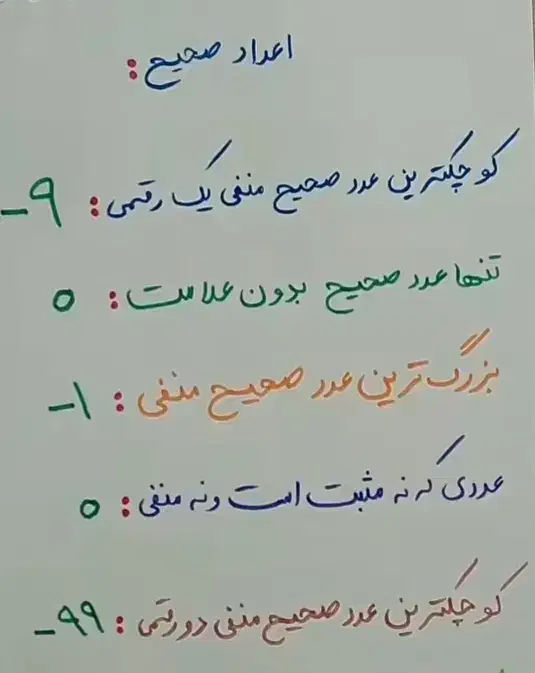 اعداد صحیح :
کوچکترین عدد صحیح منفی یک رقمی : ۹-
تنها عدد صحیح بدون علامت : ۰
بزرگ ترین عدد صحیح منفی : ۱-
عددی که نه مثبت است و نه منفی : ۰
کوچکترین عدد صحیح منفی دو رقمی : ۹۹-